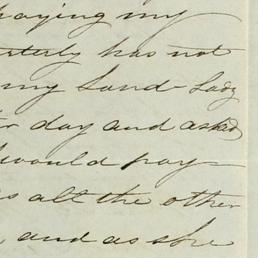 paying my
terly has not
my Land Lady
day and asked
would pay
as all the other
, and as she